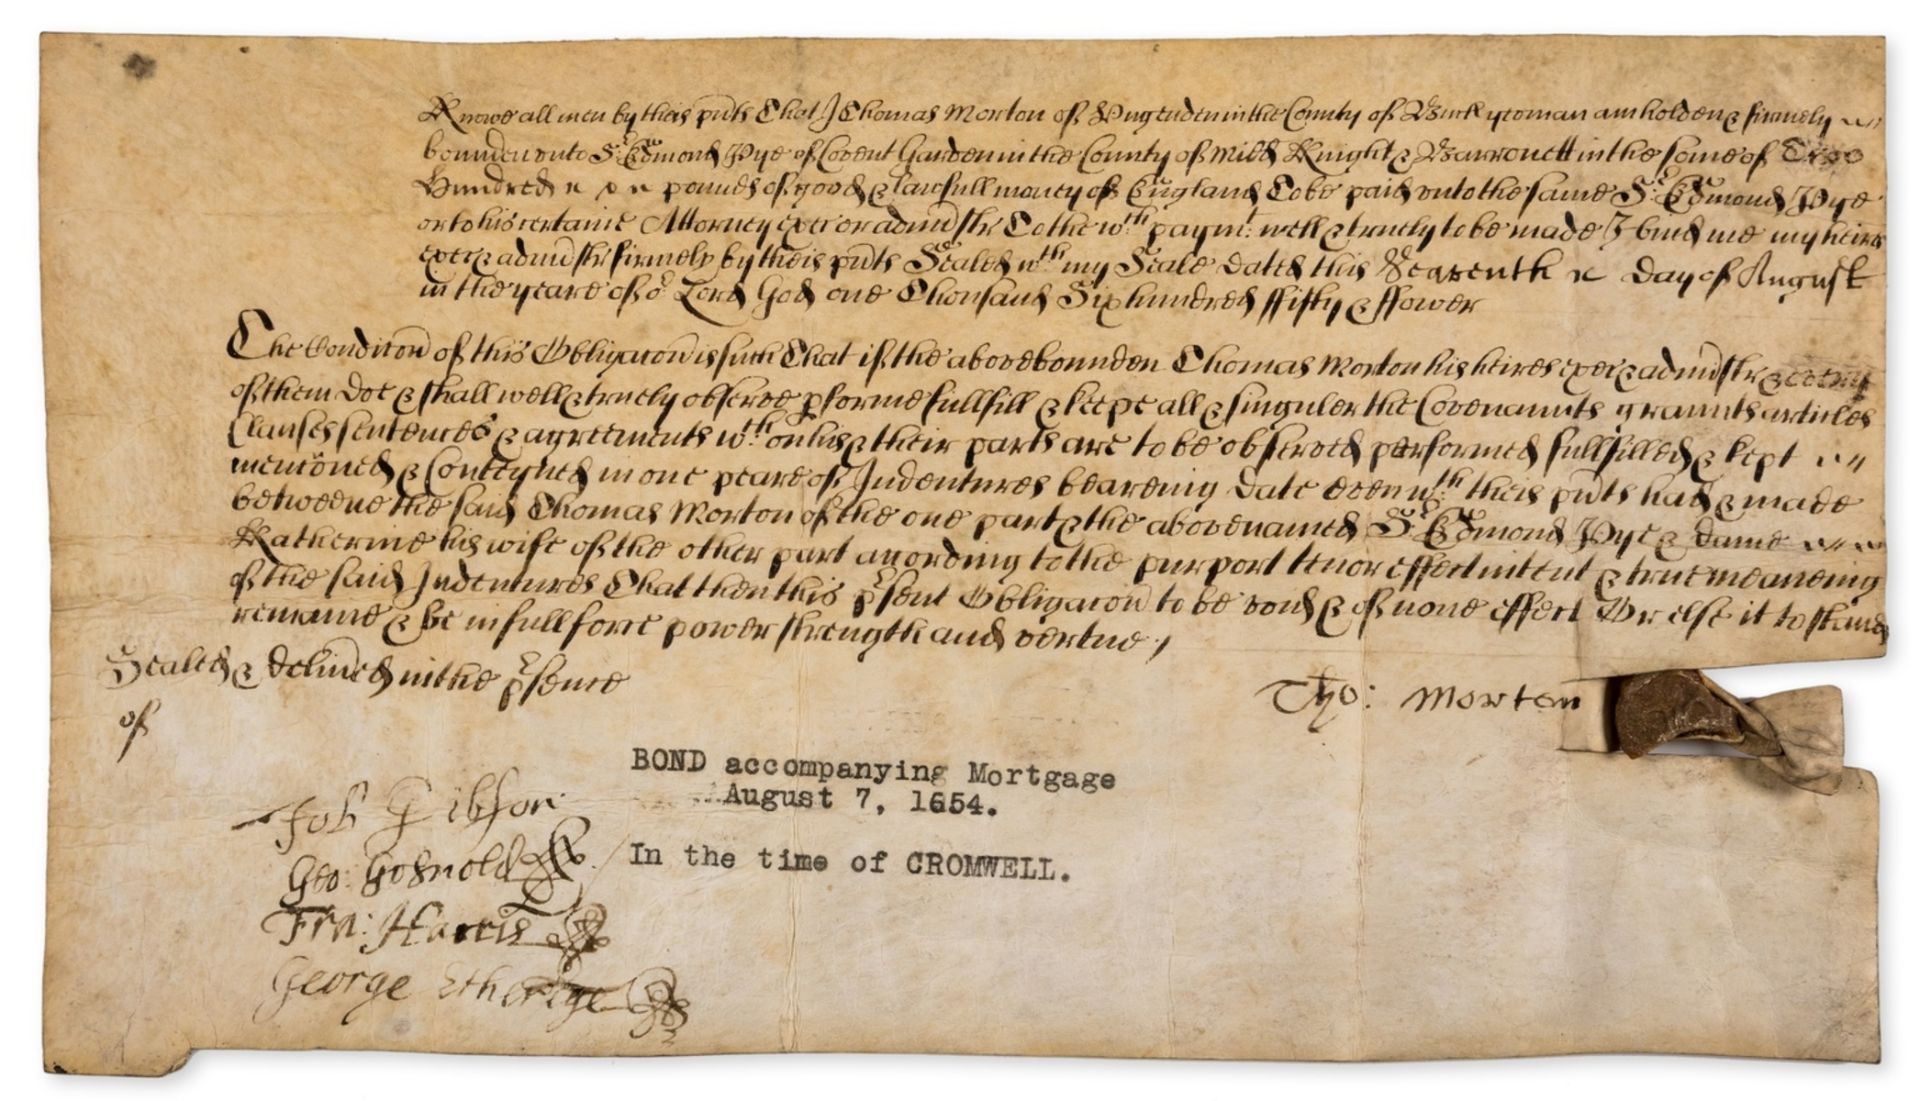 Knowe all men by theis pñts That I Thomas Morton of Hugenden in the County of Buck yeoman am holden & firmely
bounden unto Sr. Edmond Pye of Covent Garden in the County of Midd Knight & Barronett in the some of Two
Hundred pounds of good & lawfull money of England To be paid unto the same Sr. Edmond Pye
or to his certaine Attorney exec or admistr To the wth. paymt. well & truely to be made I bind me my heires
exec & admistr firmely by theis pñts Sealed wth. my Seale Dated this Seaventh Day of August
in the yeare of or. Lord God one Thousand Six hundred ffifty & ffower
The Condicon of this Obligacon is such That if the above bounden Thomas Morton his heires exec & admistr & every
of them Doe & shall well & truely observe pforme fullfill & keepe all & singuler the Covenannts grannts articles
Clauses sentences & agreements wth. on his & their parts are to be observed performed fullfilled & kept
mencõned & Conteyned in one peare of Indentures beareing Date even wth. theis pñts had & made
betweene the said Thomas Morton of the one part & the above named Sr. Edmond Pye & dame
Katherine his wife of the other part according to the purport tenor effect intent & true meaneing
of the said Indentures That then this psent Obligacon to be void & of none effect Or else it to stand
remaine & be in full force power strength and vertue /
Sealed & delived in the psence
of
Tho: Morton
BOND accompanying Mortgage
August 7, 1654.
In the time of CROMWELL.
Job Gibson
Geo: Gosnold
Fra: Harris
George Etherege